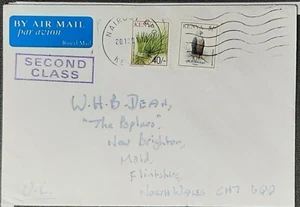 BY AIR MAIL
par avion
Royal Mail
SECOND
CLASS
NAIROBI
KENYA
40/-
KENYA
W.H.B. DEAN,
"The Poplars",
New Brighton,
Mold,
Flintshire,
NORTH WALES CH7 6QQ